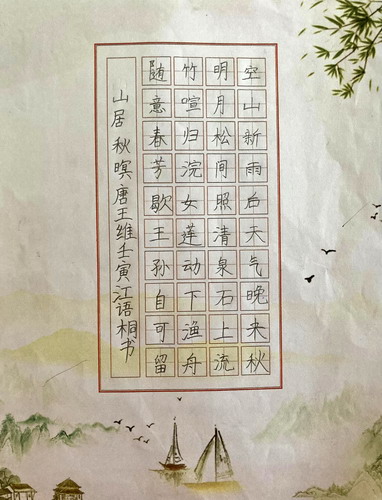 空山新雨后天气晚来秋
明月松间照清泉石上流
竹喧归浣女莲动下渔舟
随意春芳歇王孙自可留
山居秋暝唐王维壬寅江语桐书